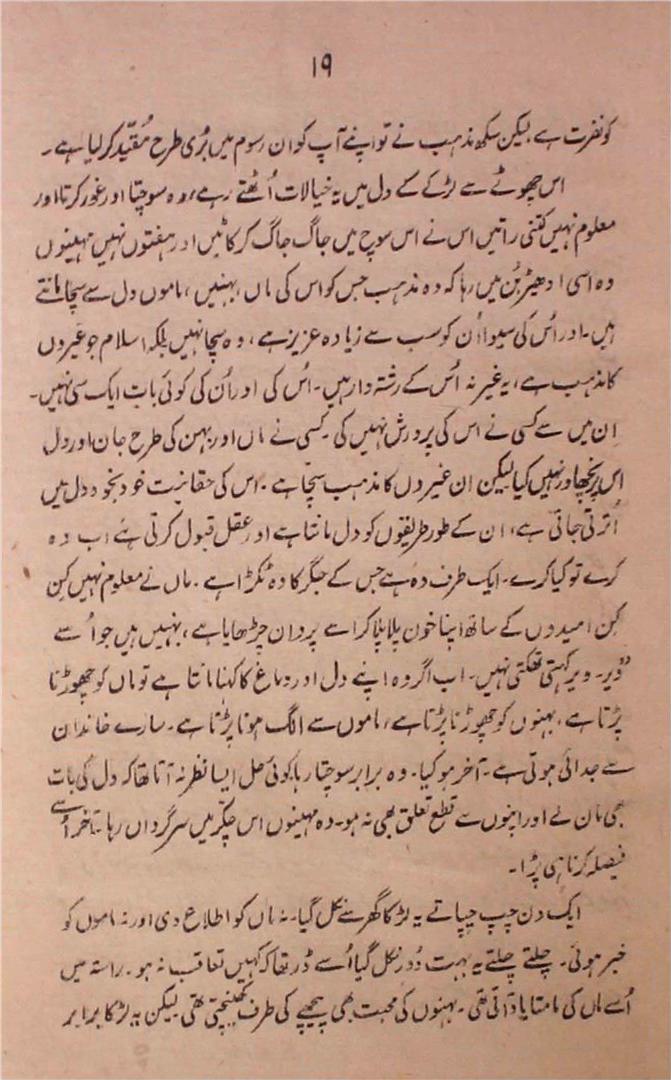 ۱۹
کو نفرت ہے لیکن سکھ مذہب نے تو اپنے آپ کو ان رسوم میں بُری طرح مُقیّد کر لیا ہے۔
اس چھوٹے سے لڑکے کے دل میں یہ خیالات اُٹھتے رہے، وہ سوچتا اور غور کرتا اور
معلوم نہیں کتنی راتیں اس نے اس سوچ میں جاگ جاگ کر کاٹیں اور ہفتوں نہیں مہینوں
وہ اسی ادھیڑ بُن میں رہا کہ وہ مذہب جس کو اس کی ماں، بہنیں، ماموں دل سے سچا مانتے
ہیں۔ اور اُس کی سیوا اُن کو سب سے زیادہ عزیز ہے، وہ سچا نہیں بلکہ اسلام جو غیروں
کا مذہب ہے، یہ غیر نہ اُس کے رشتہ دار ہیں۔ اُس کی اور اُن کی کوئی بات ایک سی نہیں۔
اِن میں سے کسی نے اس کی پرورش نہیں کی۔ کسی نے ماں اور بہن کی طرح جان اور دل
اس پر نچھاور نہیں کیا لیکن ان غیروں کا مذہب سچّا ہے۔ اس کی حقانیت خود بخود دل میں
اُترتی جاتی ہے، ان کے طور طریقوں کو دل مانتا ہے اور عقل قبول کرتی ہے اب وہ
کرے تو کیا کرے۔ ایک طرف وہ ہے جس کے جگر کا وہ ٹکڑا ہے۔ ماں نے معلوم نہیں کِن
کِن امیدوں کے ساتھ اپنا خون پلا پلا کر اسے پروان چڑھایا ہے، بہنیں ہیں جو اُسے
"ویر۔ ویر" کہتی تھکتی نہیں۔ اب اگر وہ اپنے دل اور دماغ کا کہنا مانتا ہے تو ماں کو چھوڑنا
پڑتا ہے، بہنوں کو چھوڑنا پڑتا ہے، ماموں سے الگ ہونا پڑتا ہے۔ سارے خاندان
سے جدائی ہوتی ہے۔ آخر ہو کیا۔ وہ برابر سوچتا رہا، کوئی حل ایسا نظر نہ آتا تھا کہ دل کی بات
بھی مان لے اور اپنوں سے قطع تعلق بھی نہ ہو۔ وہ مہینوں اس چکّر میں سرگرداں رہا۔ آخر اُسے
فیصلہ کرنا ہی پڑا۔
ایک دن چپ چپاتے یہ لڑکا گھر سے نکل گیا۔ نہ ماں کو اطلاع دی اور نہ ماموں کو
خبر ہوئی۔ چلتے چلتے یہ بہت دُور نکل گیا اُسے ڈر تھا کہ کہیں تعاقب نہ ہو۔ راستہ میں
اُسے ماں کی مامتا یاد آتی تھی۔ بہنوں کی محبت بھی پیچھے کی طرف کھینچتی تھی لیکن یہ لڑکا برابر